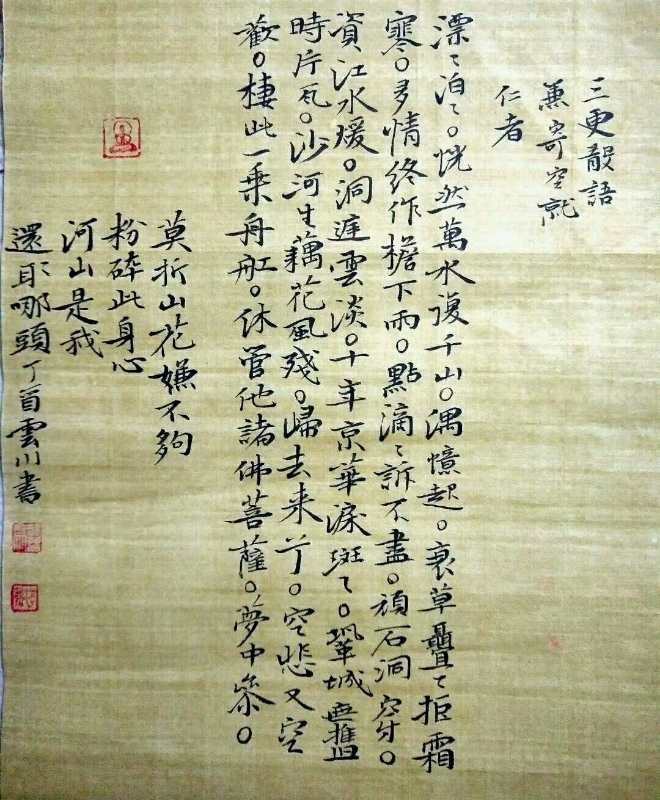 三更散語
兼寄空就
仁者
漂〻泊〻。恍然萬水復千山。偶憶起。衰草疊〻拒霜
寒。多情終作檐下雨。點滴〻訴不盡。頑石洞穿。
資江水煖。洞庭雲淡。十年京華淚斑〻。鞏城無舊
時片瓦。沙河生藕花風殘。歸去来兮。空悲又空
歡。棲此一乗舟舡。休管他諸佛菩薩。夢中参。
莫折山花嫌不夠
粉碎此身心
河山是我
還耶哪頭丁酉雲川書